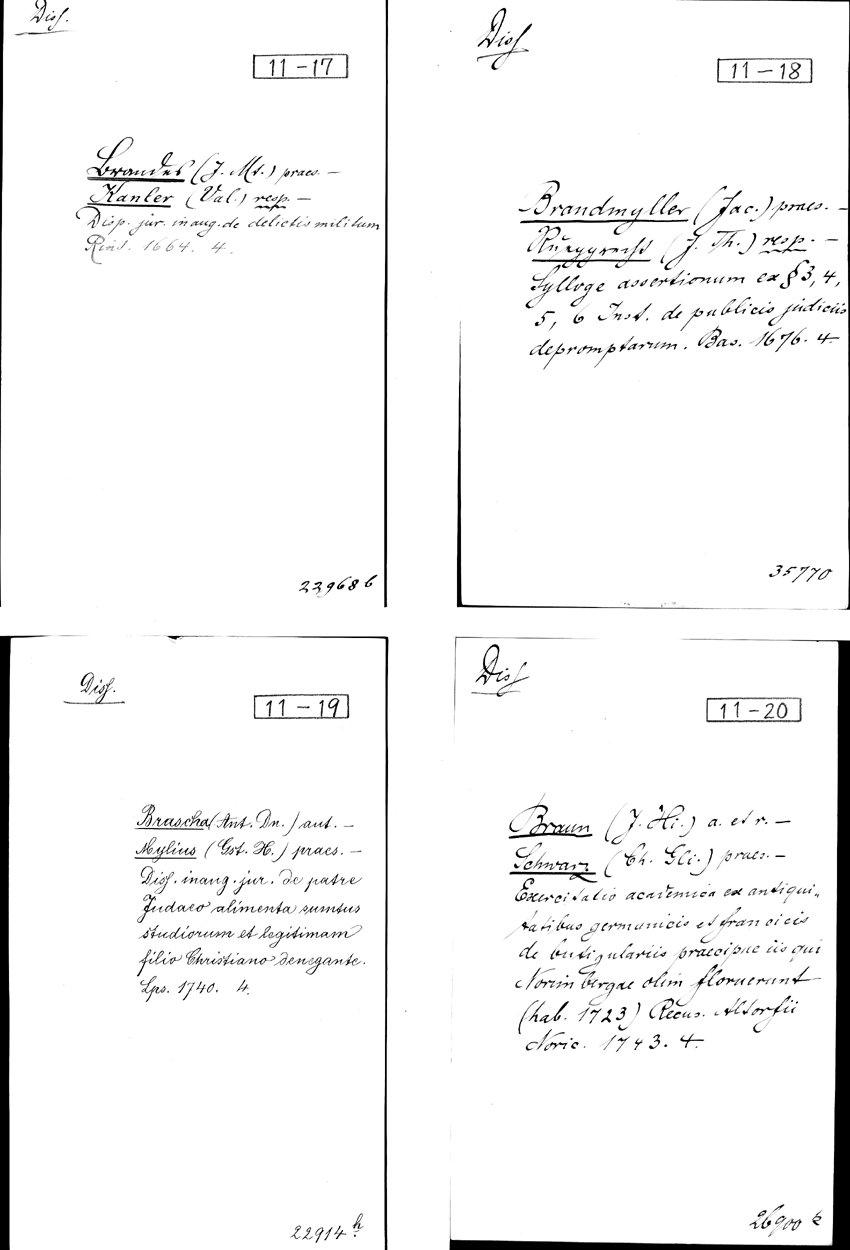 Diss.
11-17
Brandes (J. Mt.) praes. —
Kanler (Val.) resp. —
Disp. jur. inaug. de delictis militum
Rint. 1664. 4.
22968 b
Diss
11-18
Brandmyller (Jac.) praes. —
(J. Th.) resp. —
Sylloge assertionum ex § 3, 4,
5, 6 Inst. de publicis judiciis
depromptarum. Bas. 1676. 4.
35770
Diss.
11-19
Brascha (Ant. Dn.) aut. —
Mylius (Gst. H.) praes. —
Diss. inaug. jur. de patre
Judaeo alimenta sumtus
studiorum et legitimam
filio Christiano denegante.
Lps. 1740. 4.
22914 h.
Diss
11-20
Braun (J. Hi.) a. et r. —
Schwarz (Ch. Gli.) praes. —
Exercitatio academica ex antiqui-
tatibus germanicis et francicis
de butigulariis praecipue iis qui
Norimbergae olim floruerunt
(hab. 1723) Recus. Altorfii
Noric. 1743. 4.
26900 k